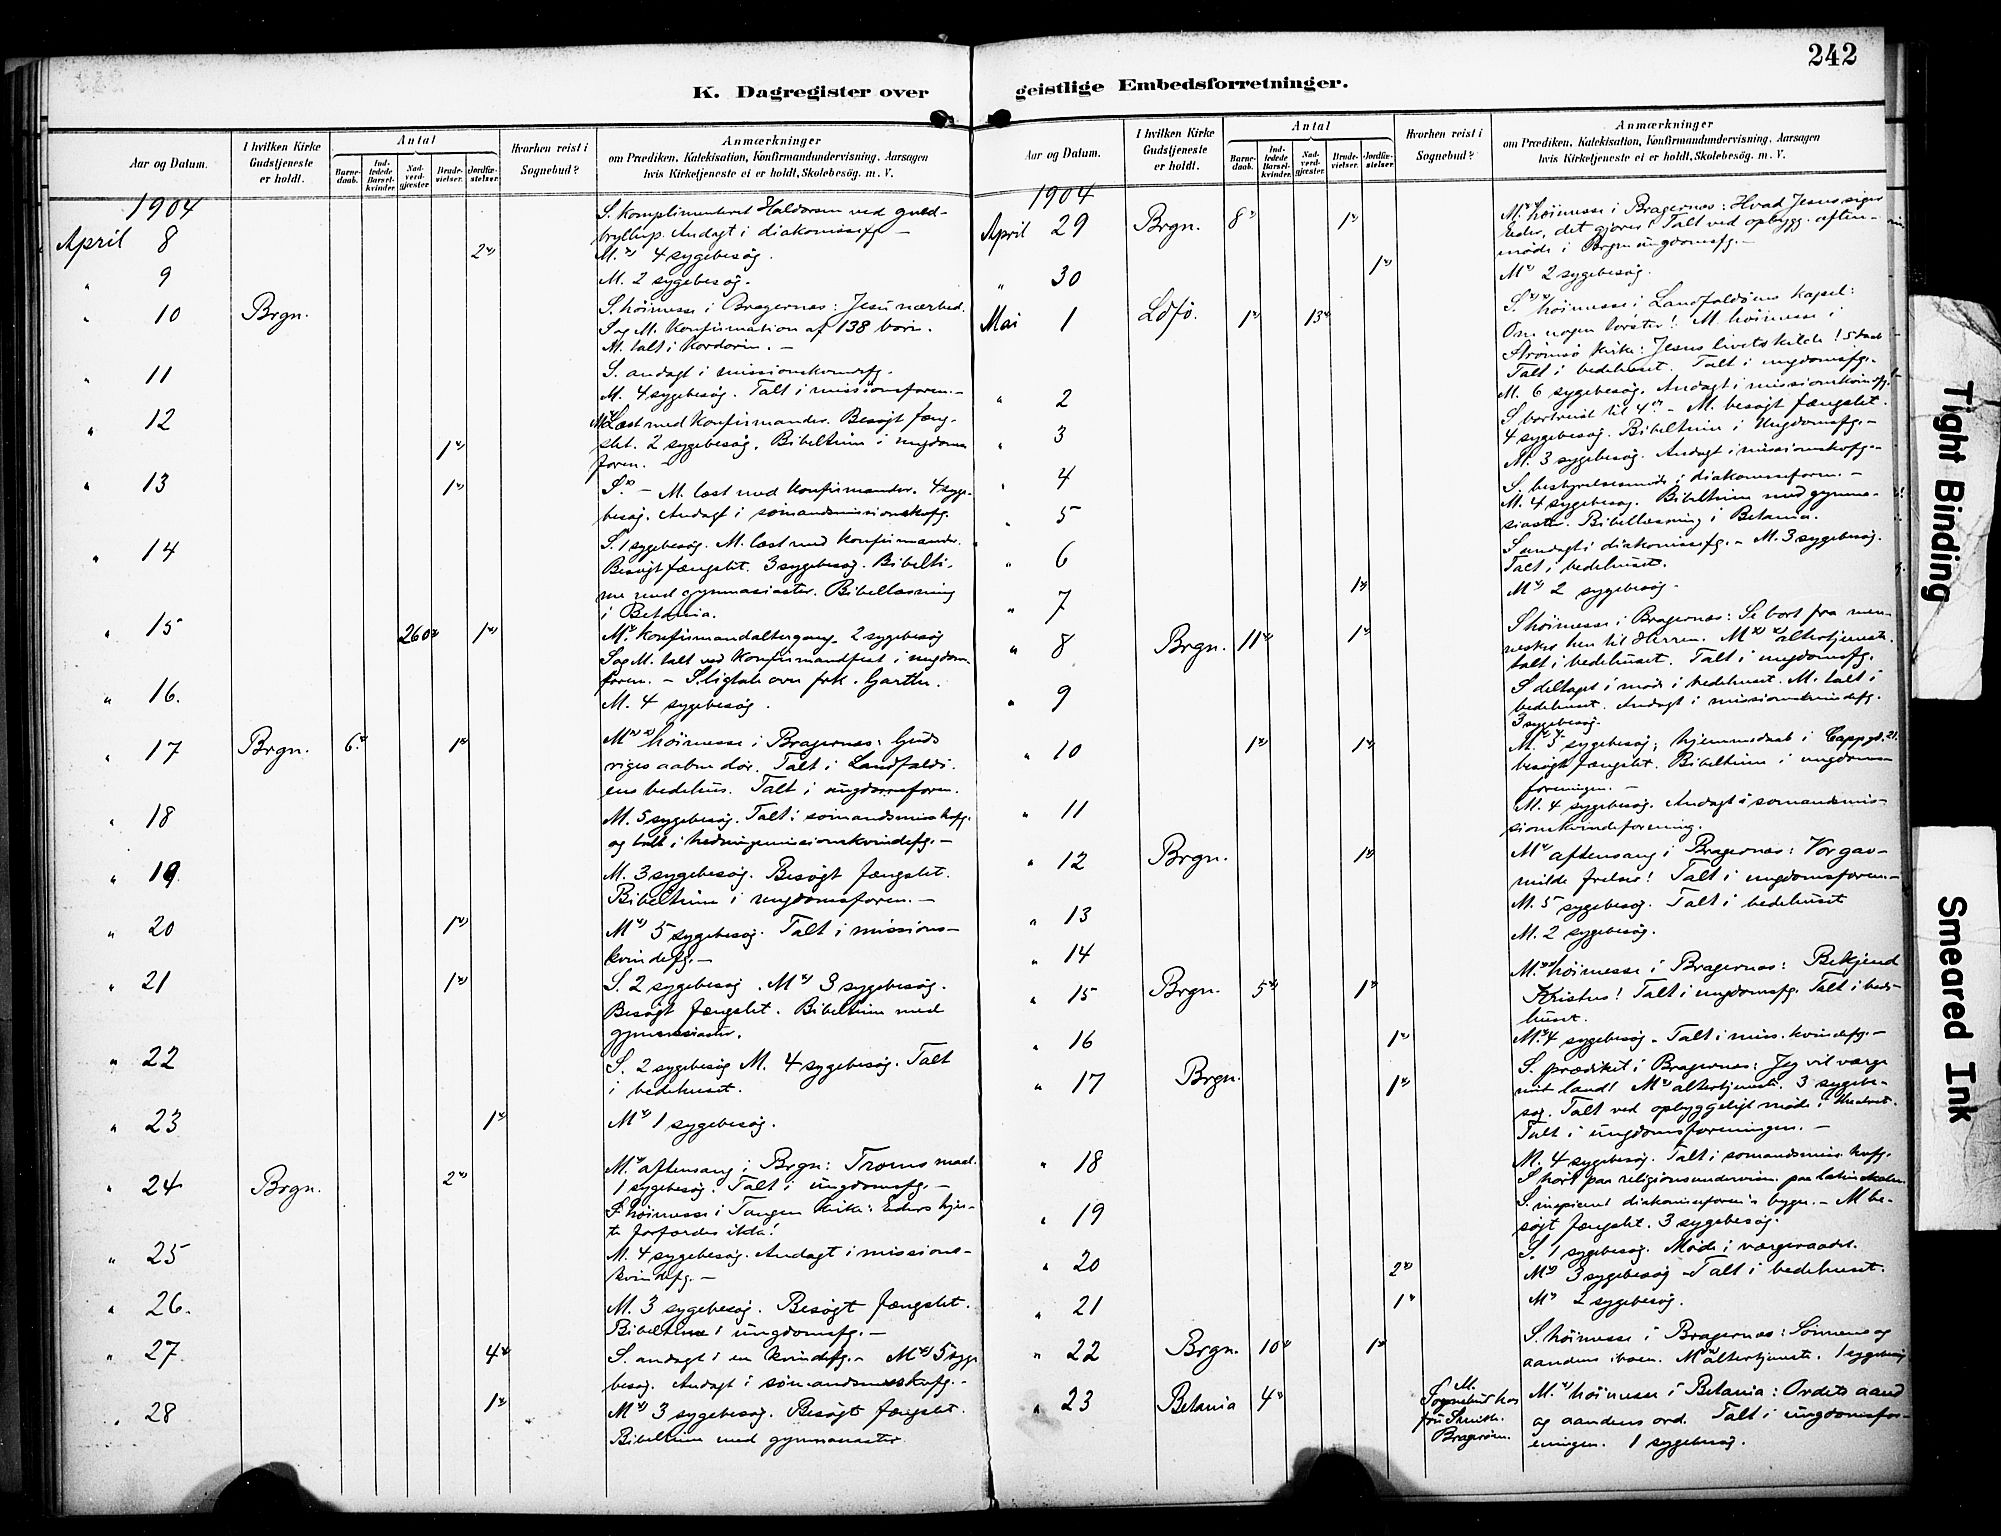 242
K. Dagregister over
geistlige Embedsforretninger.
Aar og Datum.
I hvilken Kirke Gudstjeneste er holdt.
Antal
Barnedaab.
Indledede Barselkvinder.
Nadverdgjæster
Brudevielser.
Jordfæstelser
Hvorhen reist i Sognebud?
Anmærkninger
om Prædiken, Katekisation, Konfirmandundervisning, Aarsagen
hvis Kirketjeneste ei er holdt, Skolebesøg. m. V.
1904
S. komplimenteret Haldorsen ved guld-
bryllup. Andagt i diakonissefg. –
April 8 2 M. 4 sygebesøg.
" 9 M. 2 sygebesøg.
" 10 Brgn. S. höimesse i Bragernæs: Jesu nærhed.
S og M. Konfirmation af 138 børn.
M. talt i –
" 11 S. andagt i missionskvindefg.
M. 4 sygebesøg. Talt i missionsforen. –
" 12 M. Læst med konfirmander. Besøgt fæng-
slet. 2 sygebesøg. Bibeltime i ungdoms 1
foren. –
" 13 1 S. – M. læst med konfirmander. 4 syge-
besøg. Andagt i sømandsmissionskvfg.
" 14 S. 1 sygebesøg. M. læst med konfirmander.
Besøgt fængslet. 3 sygebesøg. Bibelti-
me med gymnasiaster. Bibellæsning
i Betania.
" 15 260 1 M. konfirmandaltergang. 2 sygebesøg
S og M. talt ved konfirmandfest i ungdoms
foren. – S. ligtale over frk.
" 16. M. 4 sygebesøg.
" 17 Brgn. 6 1 M. höimesse i Bragernæs: Guds
riges aabne dør. Talt i Landfalds-
ens bedehus. Talt i ungdomsforen.
" 18 M. 5 sygebesøg. Talt i sømandsmisskvfg.
og talt i hedningemissionskvindefg. –
" 19. M. 3 sygebesøg. Besøgt fængslet.
Bibeltime i ungdomsforen. –
" 20 1 M. 5 sygebesøg. Talt i missions-
kvindefg. –
" 21 1 S. 2 sygebesøg. M. 3 sygebesøg.
Besøgt fængslet. Bibeltime med
gymnasiaster.
" 22 S. 2 sygebesøg M. 4 sygebesøg. Talt
i bedehuset.
" 23 1 M. 1 sygebesøg.
" 24 Brgn. 2 M. aftensang i Brgn: Troens maal.
1 sygebesøg. Talt i ungdomsfg. –
S. höimesse i Tangen kirke: Eders hjer-
te forfærdes ikke!
" 25 M. 4 sygebesøg. Andagt i missions-
kvindefg. –
" 26. M. 3 sygebesøg. Besøgt fængslet.
Bibeltime i ungdomsfg. –
" 27. 4 S. andagt i en kvindefg. – M. 5 syge
besøg. Andagt i sømandsmisskvfg. –
" 28 1 M. 3 sygebesøg. Besøgt fængslet.
Bibeltime med gymnasiaster.
Aar og Datum.
I hvilken Kirke Gudstjeneste er holdt.
Antal
Barnedaab.
Indledede Barselkvinder.
Nadverdgjæster
Brudevielser.
Jordfæstelser
Hvorhen reist i Sognebud?
Anmærkninger
om Prædiken, Katekisation, Konfirmandundervisning, Aarsagen
hvis Kirketjeneste ei er holdt, Skolebesøg. m. V.
1904
April 29 Brgn. 8 1 M. höimesse i Bragernæs: Hvad Jesus siger
Eder, det gjører! Talt ved opbygg. aften-
møde i Brgn ungdomsfg. –
" 30 1 M. 2 sygebesøg.
Mai 1 Ldfø. 1 13 S. höimesse i Landfaldöens kapel:
Om nogen tørster! M. höimesse i
Strømsø kirke: Jesus livets kilde!
Talt i bedehuset. Talt i ungdomsfg. –
" 2 M. 6 sygebesøg. Andagt i missionskvindefg.
S bortreist til 4de – M. besøgt fængslet.
" 3 4 sygebesøg. Bibeltime i Ungdomsfg. –
M. 3 sygebesøg. Andagt i missionskvfg. –
" 4 S. bestyrelsesmøde i diakonisseforen. –
M. 4 sygebesøg. Bibeltime med gymna-
" 5 siaster. Bibellæsning i Betania.
S andagt i diakonissefg. – M. 3 sygebesøg.
" 6 Talt i bedehuset.
" 7 1 M. 2 sygebesøg.
" 8 Brgn. 11 1 S höimesse i Bragernæs: Se bort fra men-
nesker hen til Herren. M. altertjeneste.
talt i bedehuset. Talt i ungdomsfg.
" 9 S deltaget i møde i bedehuset. M. talt i
bedehuset. Andagt i missionskvindefg.
3 sygebesøg.
" 10 1 1 M. 5 sygebesøg; hjemmedaab i Cappgd. 21.
besøgt fængslet. Bibeltime i ungdoms-
foreningen. –
" 11 M. 4 sygebesøg. Andagt i sømandsmis-
sionskvindeforening.
" 12 Brgn. 1 M. aftensang i Bragernæs: Vor gav-
milde frelser! Talt i ungdomsforen. –
" 13 M. 5 sygebesøg. Talt i bedehuset
" 14 M. 2 sygebesøg.
" 15 Brgn. 5 1 M. höimesse i Bragernæs: Bekjend
Kristus! Talt i ungdomsfg. Talt i bede-
huset.
" 16 1 M. 4 sygebesøg – Talt i miss. kvindefg. –
" 17 Brgn. 1 S. prædiket i Bragernæs: Jeg vil værge
mit land! M. altertjeneste. 3 sygebe-
søg. Talt ved opbyggeligt møde i
Talt i ungdomsforeningen. –
" 18 M. 4 sygebesøg. Talt i sømandsmiss. kvfg.
S hørt paa religionsundervisn. paa latinskolen
" 19 S. inspiceret diakonisseforen's bygn. – M be-
søgt fængslet. 3 sygebesøg.
S. 1 sygebesøg. Møde i værgeraadet.
" 20 2 M. 3 sygebesøg – Talt i bedehuset.
" 21 1 M. 2 sygebesøg.
" 22 Brgn. 10 1 S. höimesse i Bragernæs: Sønnens og
aandens iboen. M altertjeneste. 1 sygebesøg
" 23 Betania 4 M. Sognebud hos fru Smith. Bragerøen. M. höimesse i Betania: Ordets aand
og aandens ord. Talt i ungdomsfor-
eningen. 1 sygebesøg.
Tight Binding
Smeared Ink